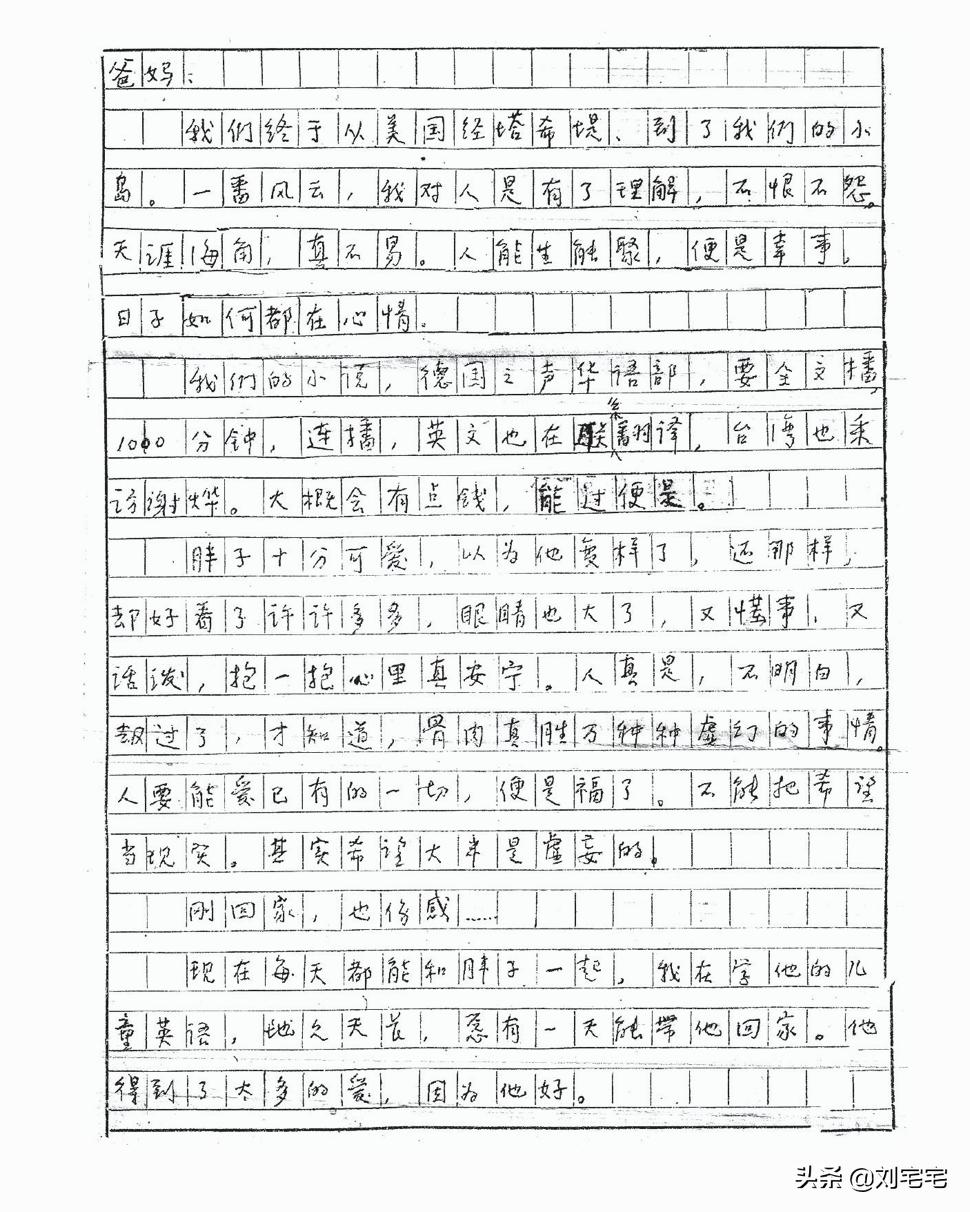 爸妈：
我们终于从美国经塔希堤、到了我们的小
岛。一番风云，我对人是有了理解，不恨不怨。
天涯海角，真不易。人能生能聚，便是幸事，
日子如何都在心情。
我们的小说，德国之声华语部，要全文播，
1000分钟，连播，英文也在联系翻译，台湾也采
访谢烨。大概会有点钱，能过便是。
胖子十分可爱，以为他变样了，还那样，
却好看了许许多多，眼睛也大了，又懂事，又
活泼，抱一抱心里真安宁。人真是，不明白，
都过了，才知道，骨肉真胜万种种虚幻的事情。
人要能爱已有的一切，便是福了。不能把希望
当现实。其实希望大半是虚妄的。
刚回家，也伤感……
现在每天都能和胖子一起，我在学他的儿
童英语，地久天长，愿有一天能带他回家。他
得到了太多的爱，因为他好。
头条 @刘宅宅